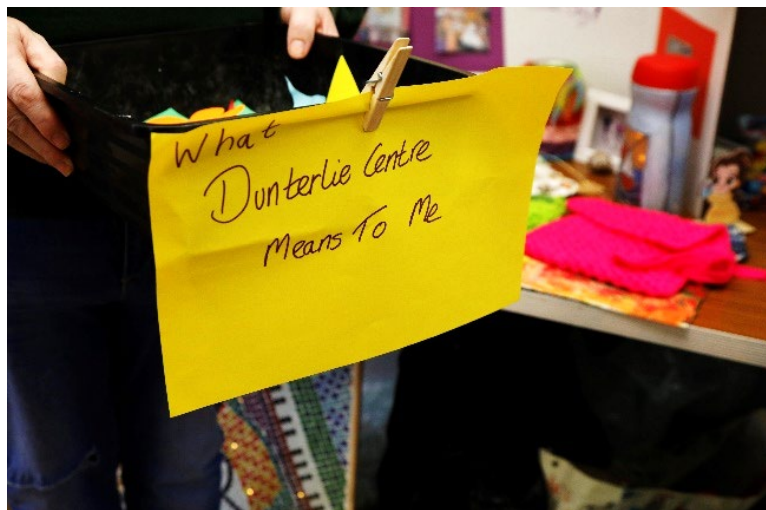 What
Dunterlie Centre
Means To Me